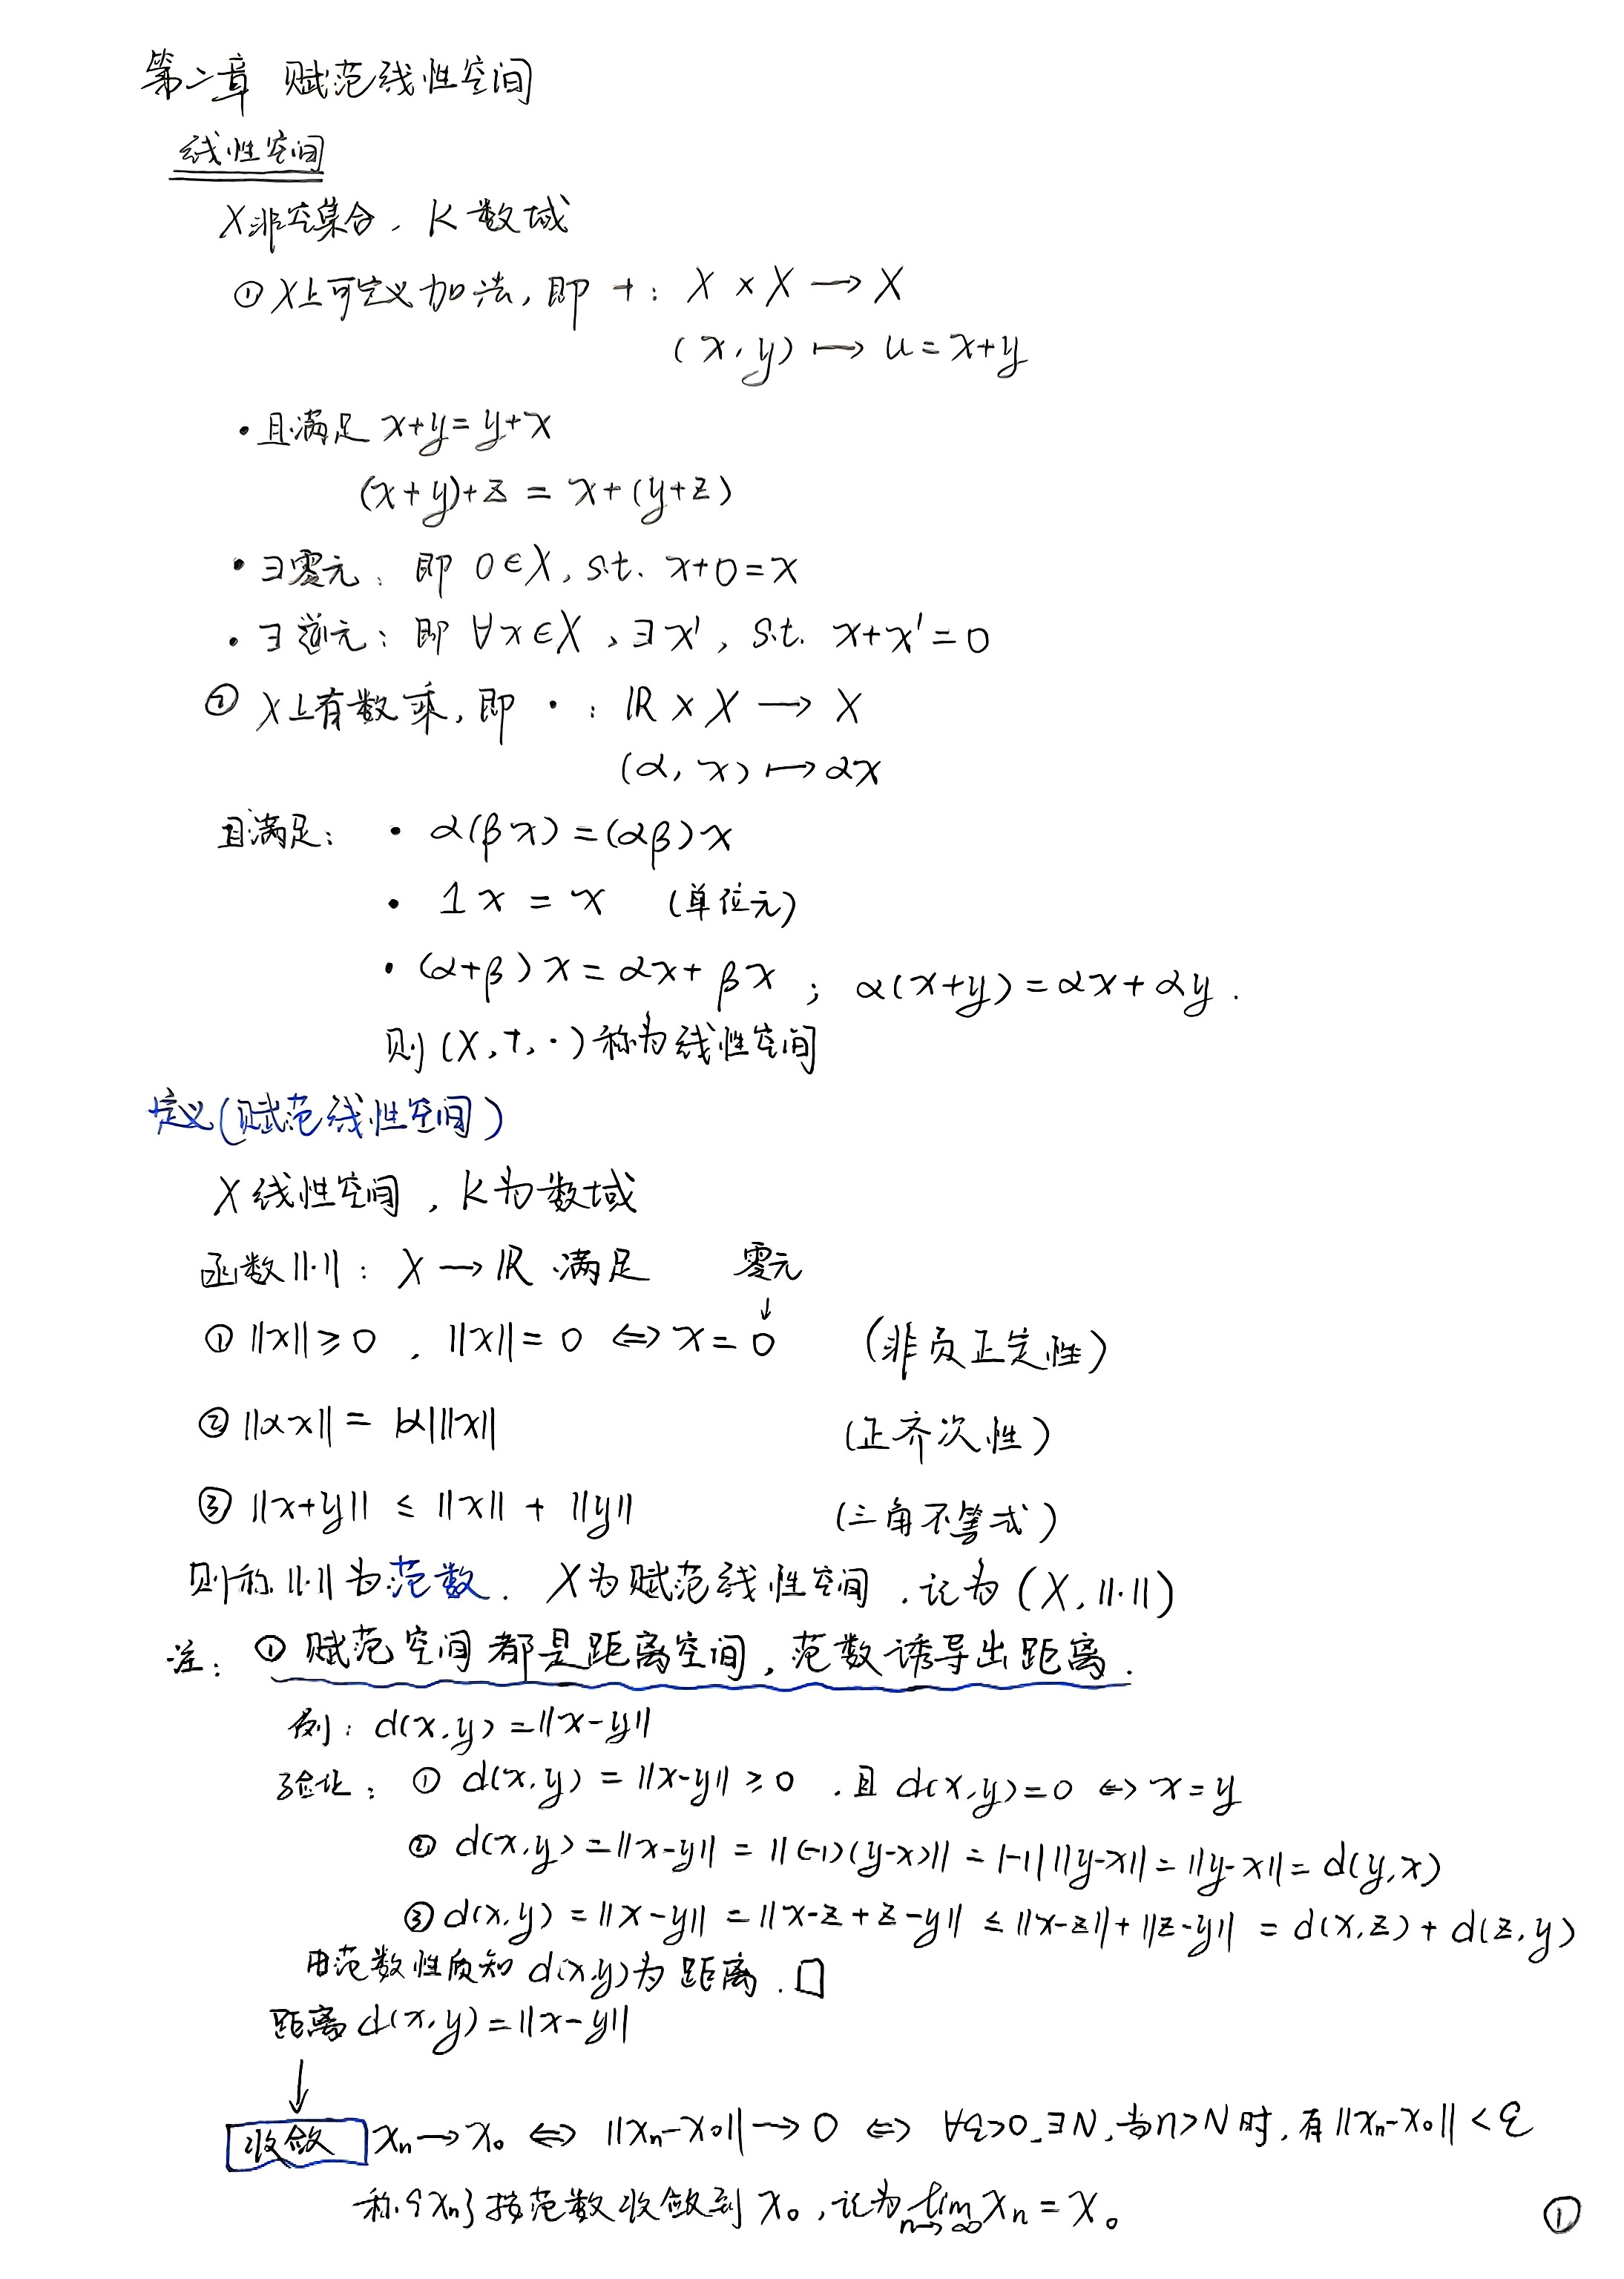 第二章 赋范线性空间
线性空间
X非空集合, K 数域
① X上可定义加法, 即 +: X × X → X
(x, y) ↦ u = x+y
• 且满足 x+y = y+x
(x+y)+z = x+(y+z)
• ∃零元: 即 0∈X, s.t. x+0=x
• ∃逆元: 即 ∀x∈X, ∃x', s.t. x+x'=0
② X上有数乘, 即 · : ℝ × X → X
(α, x) ↦ αx
且满足: • α(βx) = (αβ)x
• 1x = x (单位元)
• (α+β)x = αx+βx ; α(x+y) = αx+αy.
则 (X, +, ·) 称为线性空间
定义(赋范线性空间)
X 线性空间, K为数域
函数 ||·|| : X → ℝ 满足 零元
↓
① ||x|| ≥ 0, ||x|| = 0 ⇔ x = 0 (非负正定性)
② ||αx|| = |α| ||x|| (正齐次性)
③ ||x+y|| ≤ ||x|| + ||y|| (三角不等式)
则称 ||·|| 为范数. X为赋范线性空间, 记为 (X, ||·||)
注: ① 赋范空间都是距离空间, 范数诱导出距离.
例: d(x,y) = ||x-y||
验证: ① d(x,y) = ||x-y|| ≥ 0, 且 d(x,y)=0 ⇔ x=y
② d(x,y) = ||x-y|| = ||(-1)(y-x)|| = |-1| ||y-x|| = ||y-x|| = d(y,x)
③ d(x,y) = ||x-y|| = ||x-z+z-y|| ≤ ||x-z|| + ||z-y|| = d(x,z) + d(z,y)
由范数性质知 d(x,y)为距离. □
距离 d(x,y) = ||x-y||
↓
收敛 xₙ → x₀ ⇔ ||xₙ-x₀|| → 0 ⇔ ∀ε>0, ∃N, 当n>N时, 有||xₙ-x₀|| < ε
称{xₙ}按范数收敛到 x₀, 记为 lim n→∞ xₙ = x₀
①